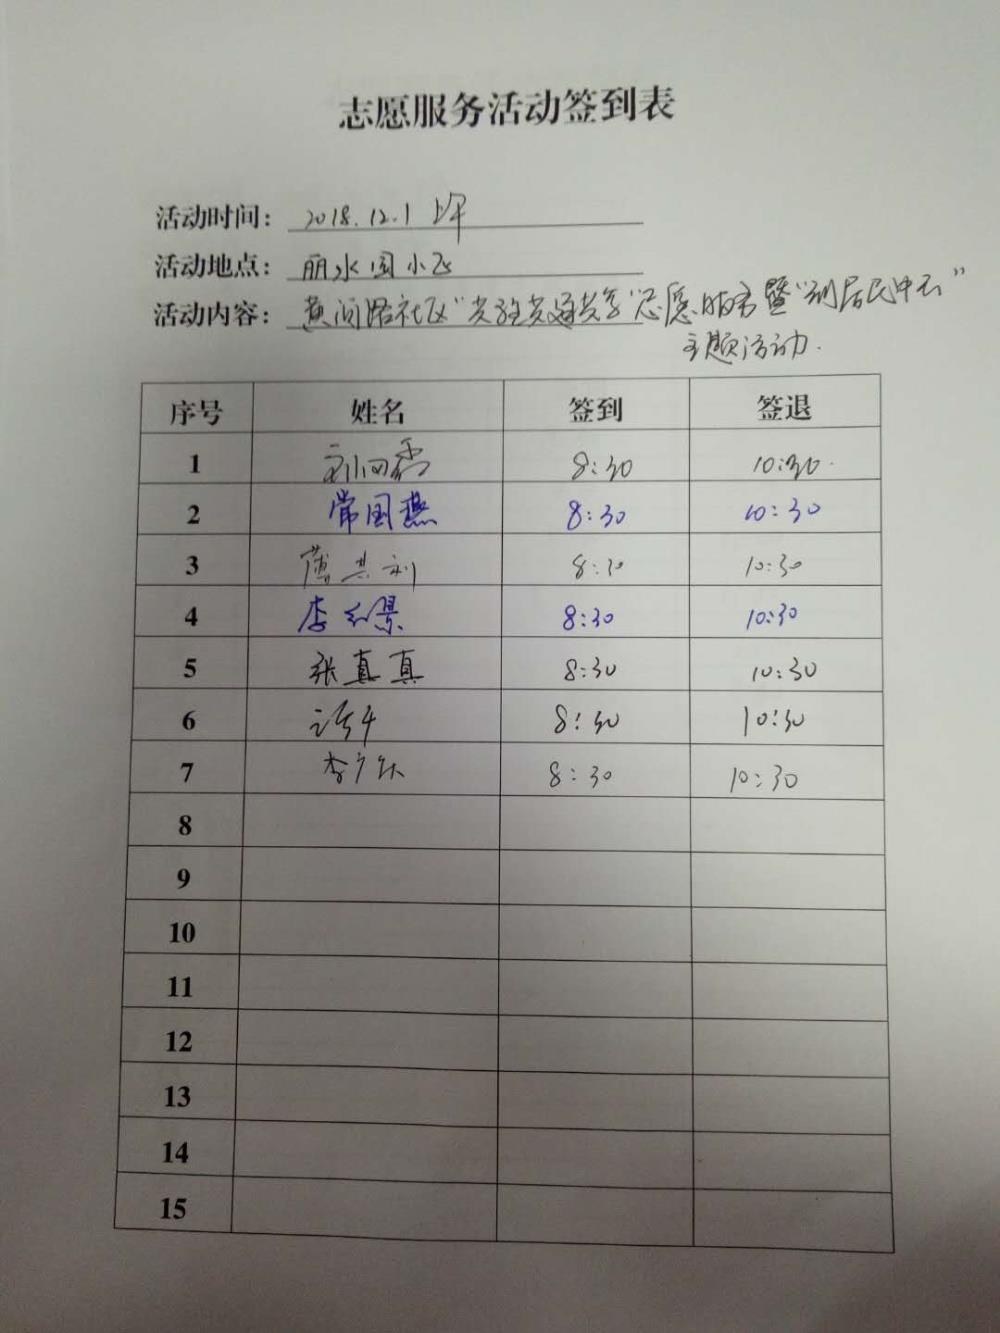 志愿服务活动签到表
活动时间： 2018.12.1 上午
活动地点： 丽水园小区
活动内容： 社区"共驻共建共享"志愿服务暨"到居民中去"
主题活动.
序号 姓名 签到 签退
1 8:30 10:30.
2 常国燕 8:30 10:30
3 薄其利 8:30 10:30
4 李红景 8:30 10:30
5 张真真 8:30 10:30
6 8:30 10:30
7 李 8:30 10:30
8
9
10
11
12
13
14
15